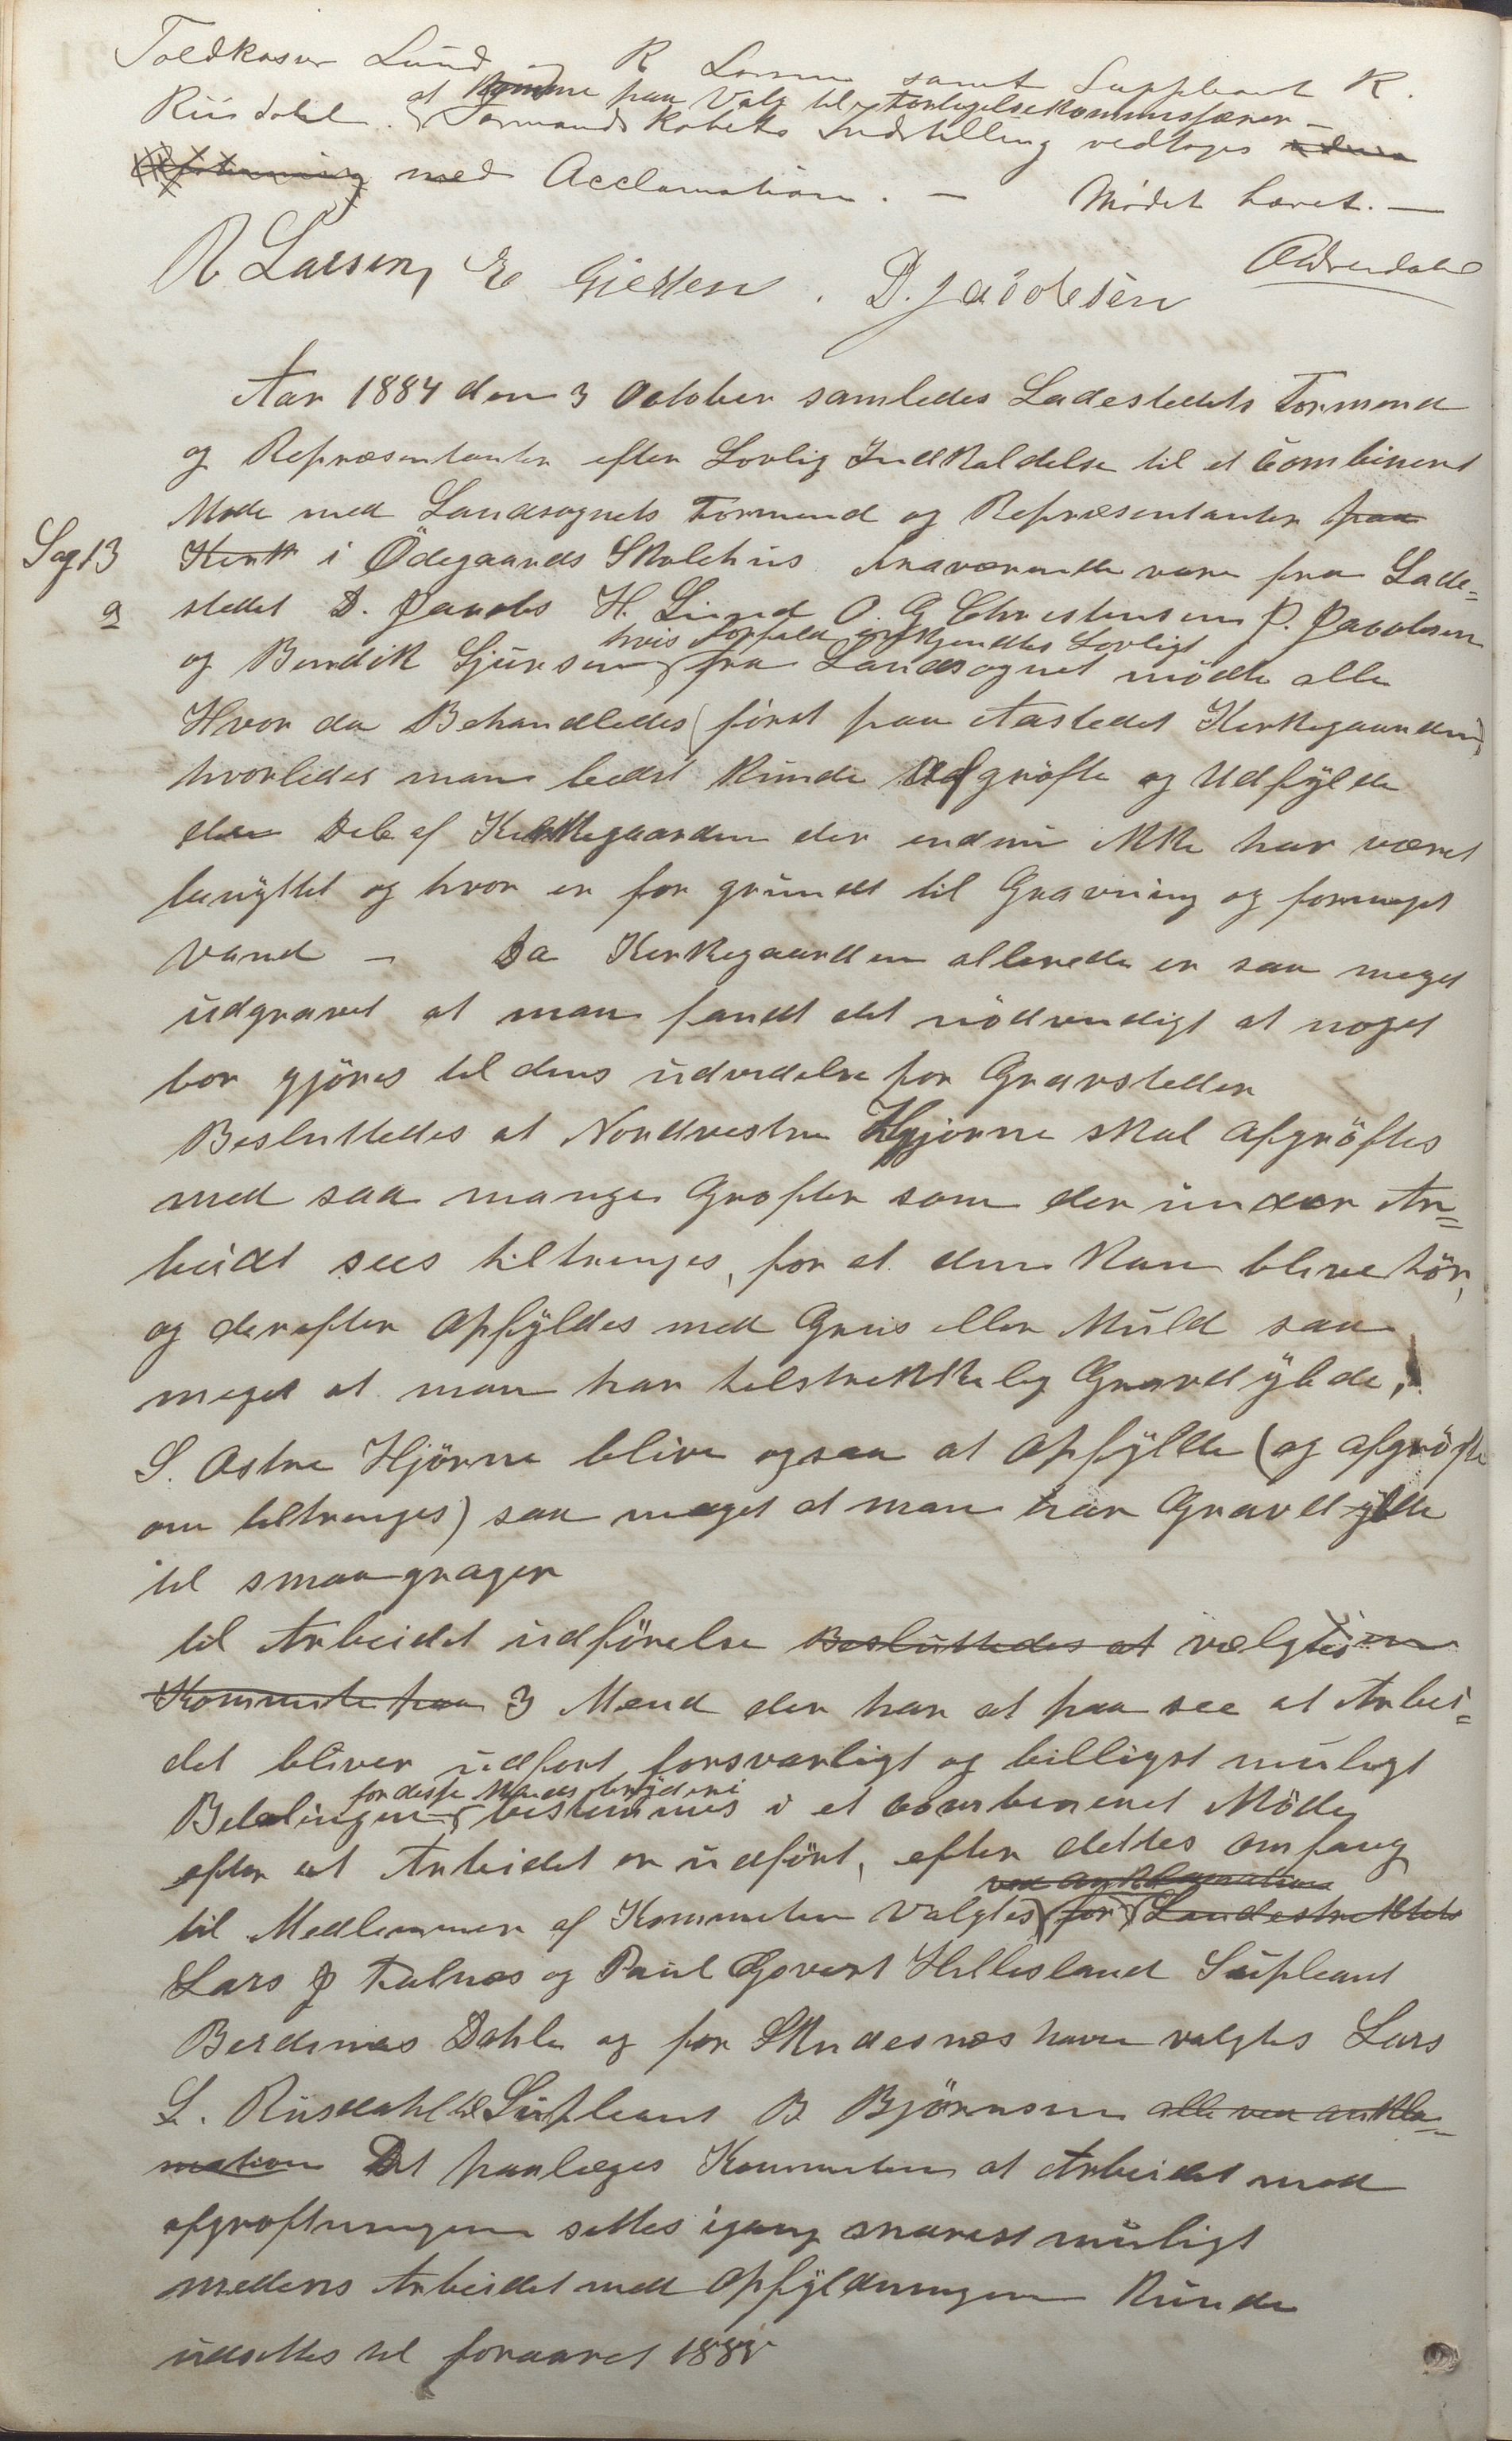 Toldkaserer Lund og R Larsen samt Suppleant R.
at komme paa Valg til Forligelseskommissærer –
Riisdahl. Formandskabets Indstilling vedtages
med Acclamation. – Mødet hævet. –
R Larsen, E Gjessen. D. Jacobsen
Aar 1884 den 3 October samledes Ladestedets Formend
og Repræsentanter efter Lovlig Indkaldelse til et Combinert
Møde med Landsognets Formend og Repræsentanter paa
Sag 13
Kirk i Ödegaards Skolehus fraværende vare fra Lade=
a
stedet D. Jacobs H. Lund O. G Christensen P. Jacobsen
hvis forfald ankjendtes Lovligt
og Bendik Sjursen fra Landsognet mödte alle
Hvor da Behandledes (först paa Aastedet Kirkegaarden)
hvorledes man bedst kunde Afgröfte og Udfylde
den Del af Kirkegaarden der endnu ikke har været
benyttet og hvor er for grundt til Gravning og formeget
Vand – Da Kirkegaarden allerede er saa meget
udgravet at man fandt det nödvendigt at noget
bör gjöres til dens udvidelse for Gravsteder
Besluttedes at Nordvestre Hjörne skal Afgröftes
med saa mange Gröfter som der under Ar=
beidet sees tiltrenges, for at den kan blive tör,
og derefter Opfyldes med Grus eller Muld saa
meget at man har tilstrekkelig Gravdybde,
S. Ostre Hjörne blive ogsaa at Opfylde (og afgröfte
om tiltrenges) saa meget at man har Gravdybde
til smaa graver
til Arbeidet udförelse Besluttedes at vælgtes en
Kommite paa 3 Mænd der har at paa see at Arbei=
det bliver udfört forsvarligt og billigst muligt
for disse Mænds bryderi
Betalingen bestemmes i et combineret Möde
efter at Arbeidet er udfört, efter dettes omfang
ved anklamation
til Medlemmer af Kommiteen Valgtes for Landestrektets
Lars J Falnes og Paul Govert Hillesland Supleant
Berdines Dahle og for Skudesneshavn valgtes Lars
L. Riisdahl til Supleant B Björnsen alle ved ankla=
mation Det paalæges Kommiteen at Arbeidet med
afgröftningen settes igang snarest muligt
medens Arbeidet med Opfyldningen kunde
udsettes til foraaret 1885